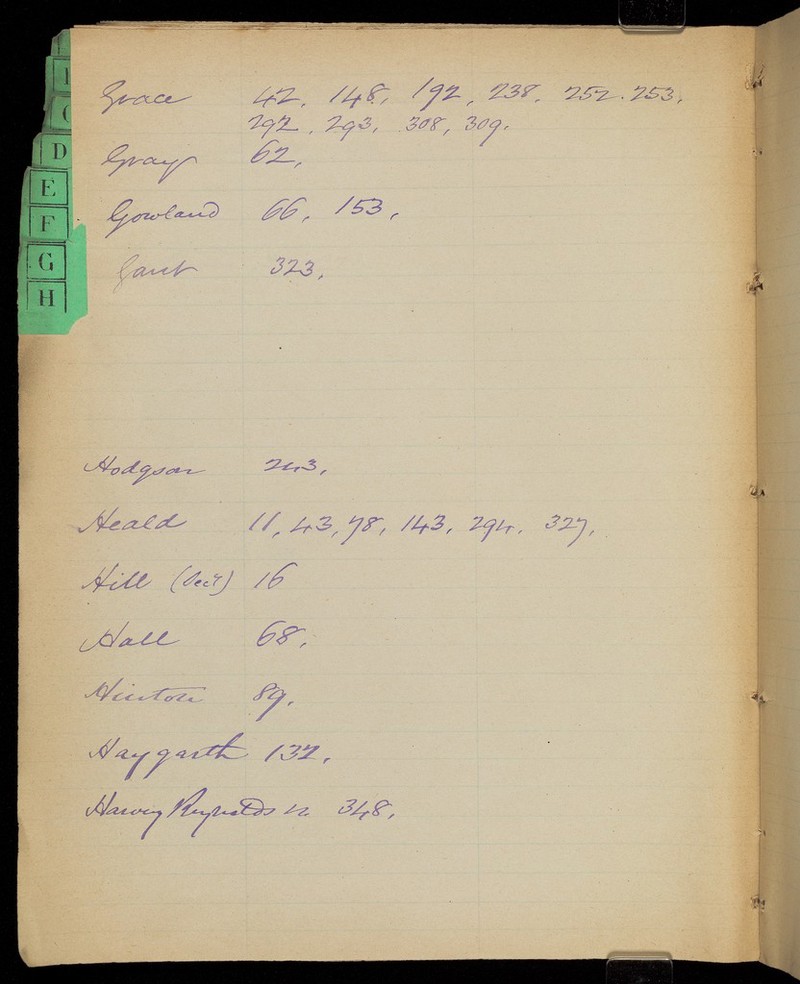 D
E
F
G
H
Grace 42, 148, 192, 238, 252. 253,
292, 293, 308, 309.
Gray 62,
Gowland 66, 153,
Gant 323,
Hodgson 243,
Heald 11, 43, 78, 143, 294, 327,
Hill 16
Hall 68,
Hinton 89,
Haygarth 132,
Harvey Reynolds 348,